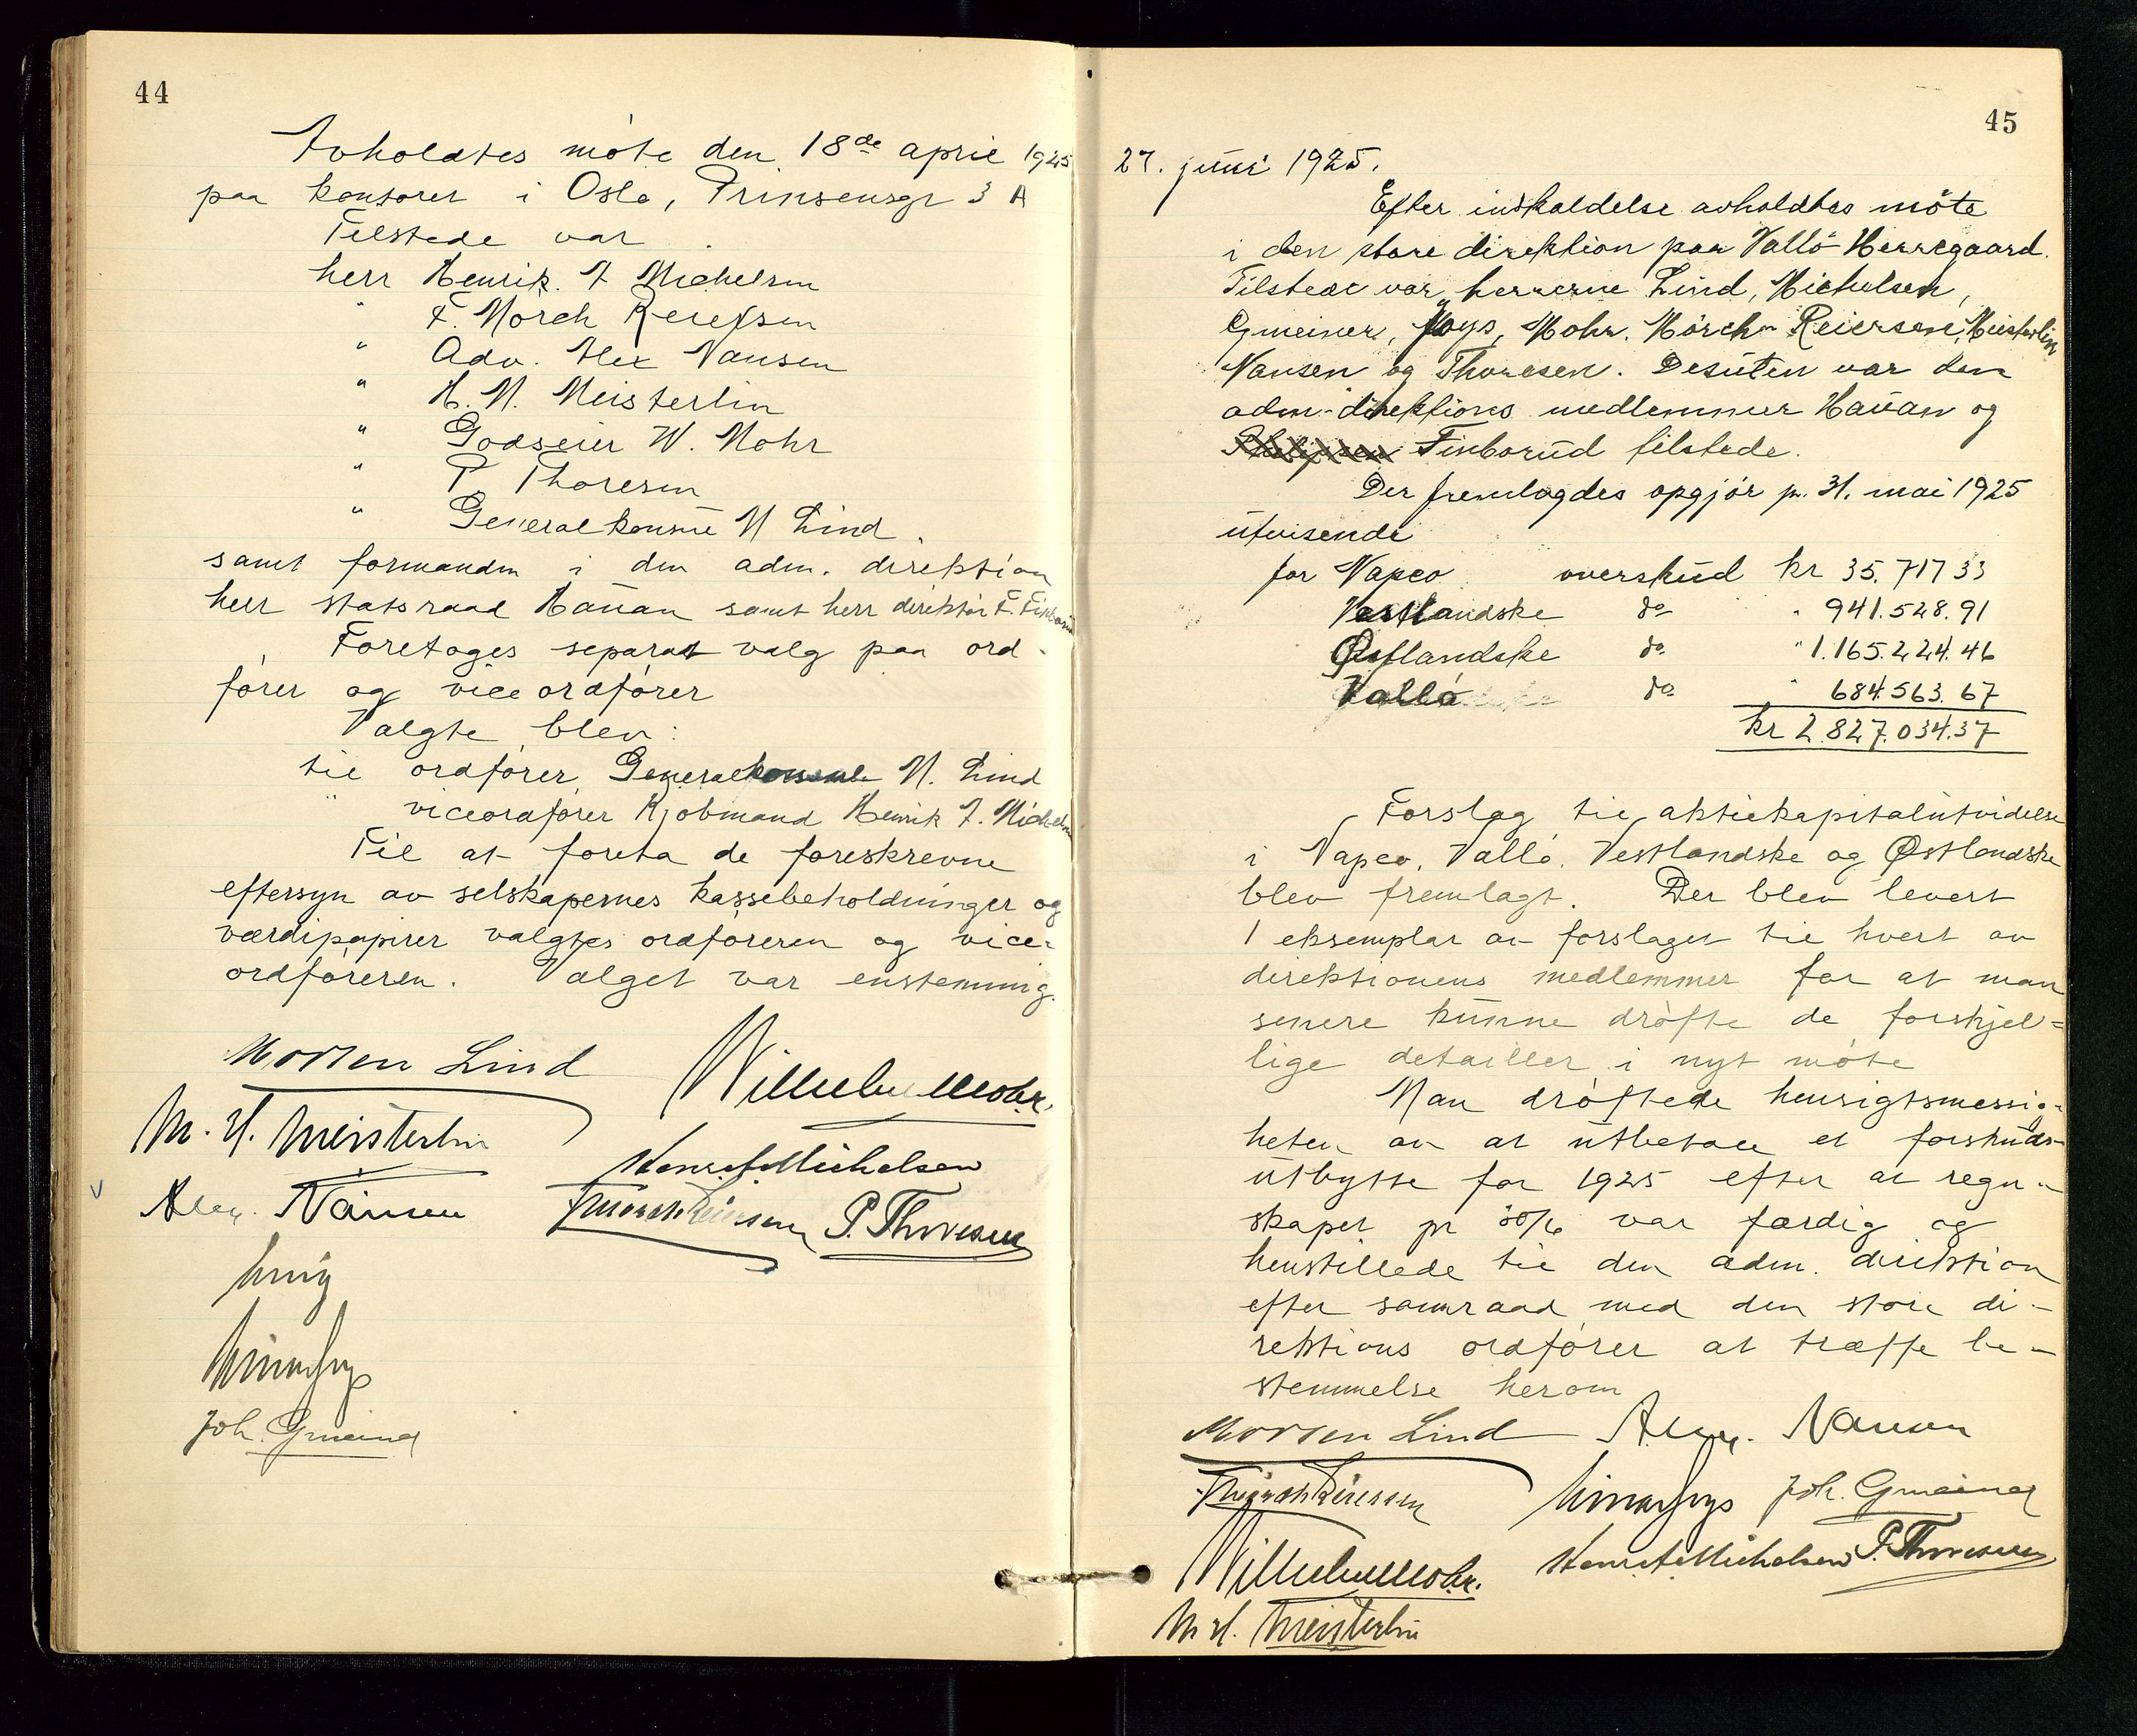 44
Avholdtes möte den 18de april 1925
paa kontoret i Oslo, Prinsensgt 3 A
Tilstede var
herr Henrik. F Michelsen
" F. Mörch Reiersen
" Adv. Alex Nansen
" H. M. Meisterlin
" Godseier W. Mohr
" P. Thoresen
" Generalkonsul M Lind.
samt formanden i den adm. direktion
herr statsraad Hauan samt herr direktör F. Finborud
Foretoges separat valg paa ord-
förer og vice ordförer
Valgte blev:
til ordförer Generalkonsul M. Lind
" viceordförer Kjöbmand Henrik F. Michelsen
Til at foreta de foreskrevne
eftersyn av selskapernes kassebeholdninger og
værdipapirer valgtes ordföreren og vice-
ordföreren. Valget var enstemmig.
Morten Lind Wilhelm Mohr.
M. H. Meisterlin Henrik F. Michelsen
Alex. Nansen F. Mörch Reiersen P. Thoresen
Joh. Gmeiner
45
27. juni 1925.
Efter indkaldelse avholdtes möte
i den store direktion paa Vallö Herregaard.
Tilstede var herrerne Lind, Michelsen,
Gmeiner, Joys, Mohr. Mörch Reiersen, Meisterlin
Nansen og Thoresen. Desuten var den
adm-direktions medlemmer Hauan og
Finborud tilstede.
Der fremlagdes opgjör pr. 31. mai 1925
utvisende
for Vapco overskud kr 35.717 33
Vestlandske do " 941.528.91
Østlandske do " 1.165.224.46
Vallö do " 684.563.67
kr 2.827.034.37
Forslag til aktiekapitalutvidelse
i Vapco, Vallö, Vestlandske og Østlandske
blev fremlagt. Der blev levert
1 eksemplar av forslaget til hvert av
direktionens medlemmer for at man
senere kunne dröfte de forskjel=
lige detailler i nyt möte
Man dröftede hensigtsmessig-
heten av at utbetale et forskuds-
utbytte for 1925 efter at regn-
skapet pr 30/6 var færdig og
henstillede til den adm. direktion
efter samraad med den store di-
rektions ordförer at træffe be-
stemmelse herom
Morten Lind Alex. Nansen
F. Mörch Reiersen Joh. Gmeiner
Wilhelm Mohr. Henrik F. Michelsen P. Thoresen
M H. Meisterlin